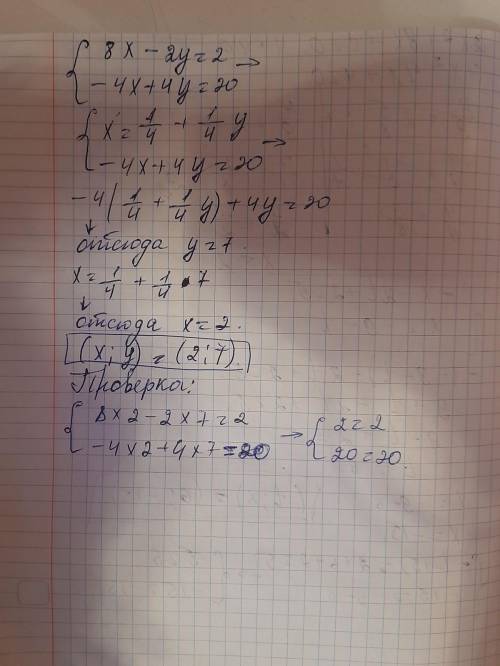 { 8x - 2y = 2 →
- 4x + 4y = 20
{ x = 1/4 + 1/4 y →
- 4x + 4y = 20
-4(1/4 + 1/4 y) + 4y = 20
↓
отсюда y = 7.
x = 1/4 + 1/4 • 7
↓
отсюда x = 2.
(x; y) = (2; 7).
Проверка:
{ 8 × 2 - 2 × 7 = 2 → { 2 = 2
- 4 × 2 + 4 × 7 = 20 20 = 20.